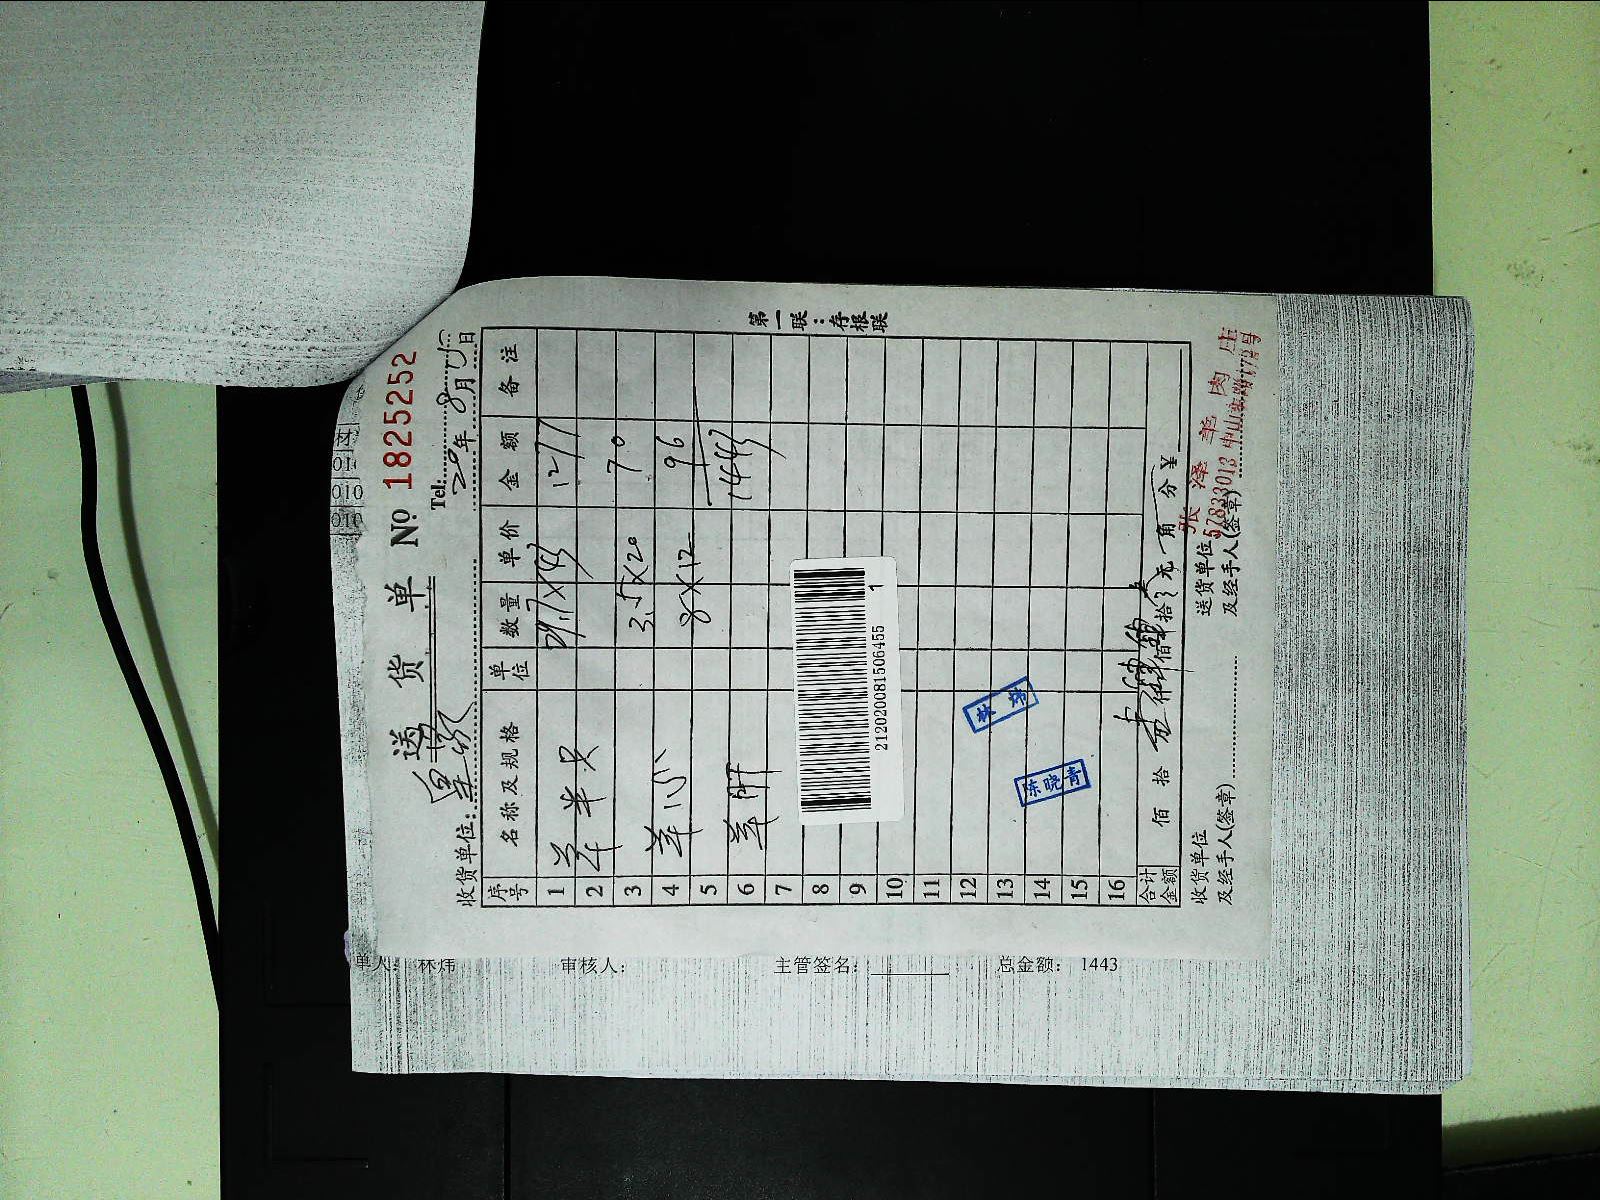 送货单 № 1825252
Tel:
收货单位:
20年8月15日
序号 名称及规格 单位 数量 单价 金额 备注
1 羊半只 29.7×43 1277
2
3 3.5×20 70
4 羊心 8×12 96
5
6 羊肝 1443
7
8
9
10
11
12
13
14
15
16
合计金额 佰 拾 壹仟肆佰肆拾3元 角 分 ¥
第一联:存根联
收货单位及经手人(签章)
送货单位及经手人(签章)
张泽羊肉庄
57833013 中山东路
212020081506455
1
林炜
陈晓青
材
010
010
010
单人: 林炜 审核人: 主管签名: 总金额: 1443